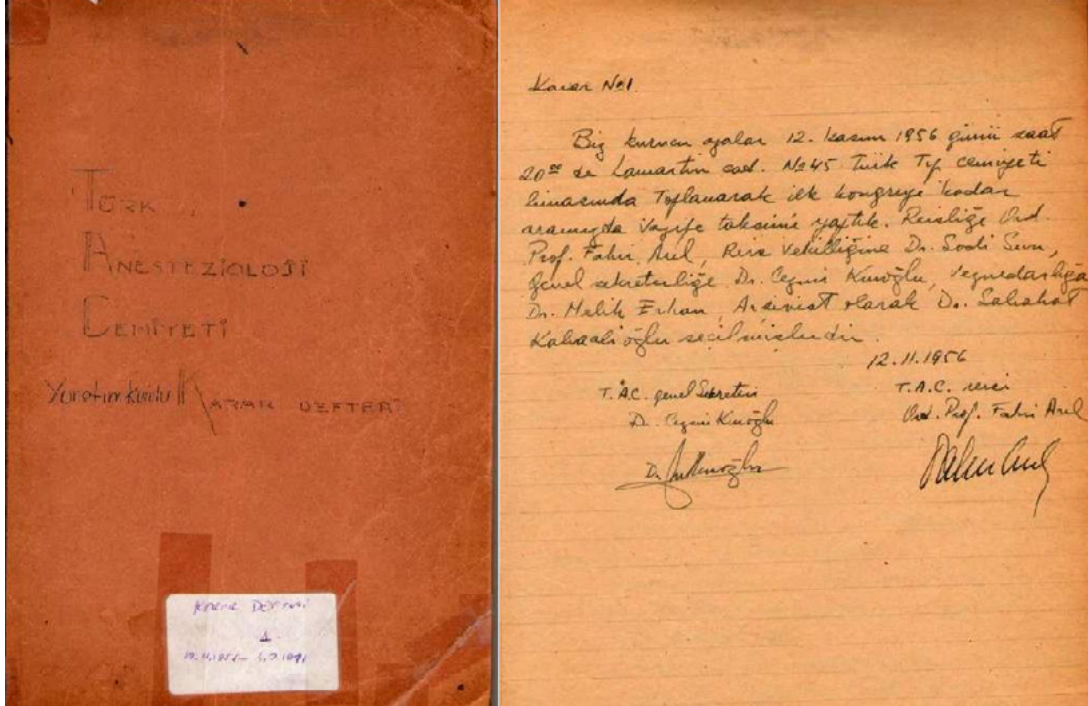 TÜRK
ANESTEZİOLOJİ
CEMİYETİ
Yönetim Kurulu KARAR DEFTERİ
KARAR DEFTERİ
1
Karar No1.
Biz kurucu azalar 12. kasım 1956 günü saat
20⁰⁰ de Lamartin cad. No 45 Türk Tıp cemiyeti
binasında Toplanarak ilk kongreye kadar
aramızda Vazife taksimi yaptık. Reisliğe Ord.
Prof. Fahri Arel, Reis Vekilliğine Dr. Sadi Sun,
genel sekreterliğe Dr. Cezmi Kınoğlu, veznedarlığa
Dr. Melih Erhan, Arşivist olarak Dr. Sabahat
Kabaalioğlu seçilmişlerdir.
12.11.1956
T.A.C. genel Sekreteri
Dr. Cezmi Kınoğlu
T.A.C. reisi
Ord. Prof. Fahri Arel